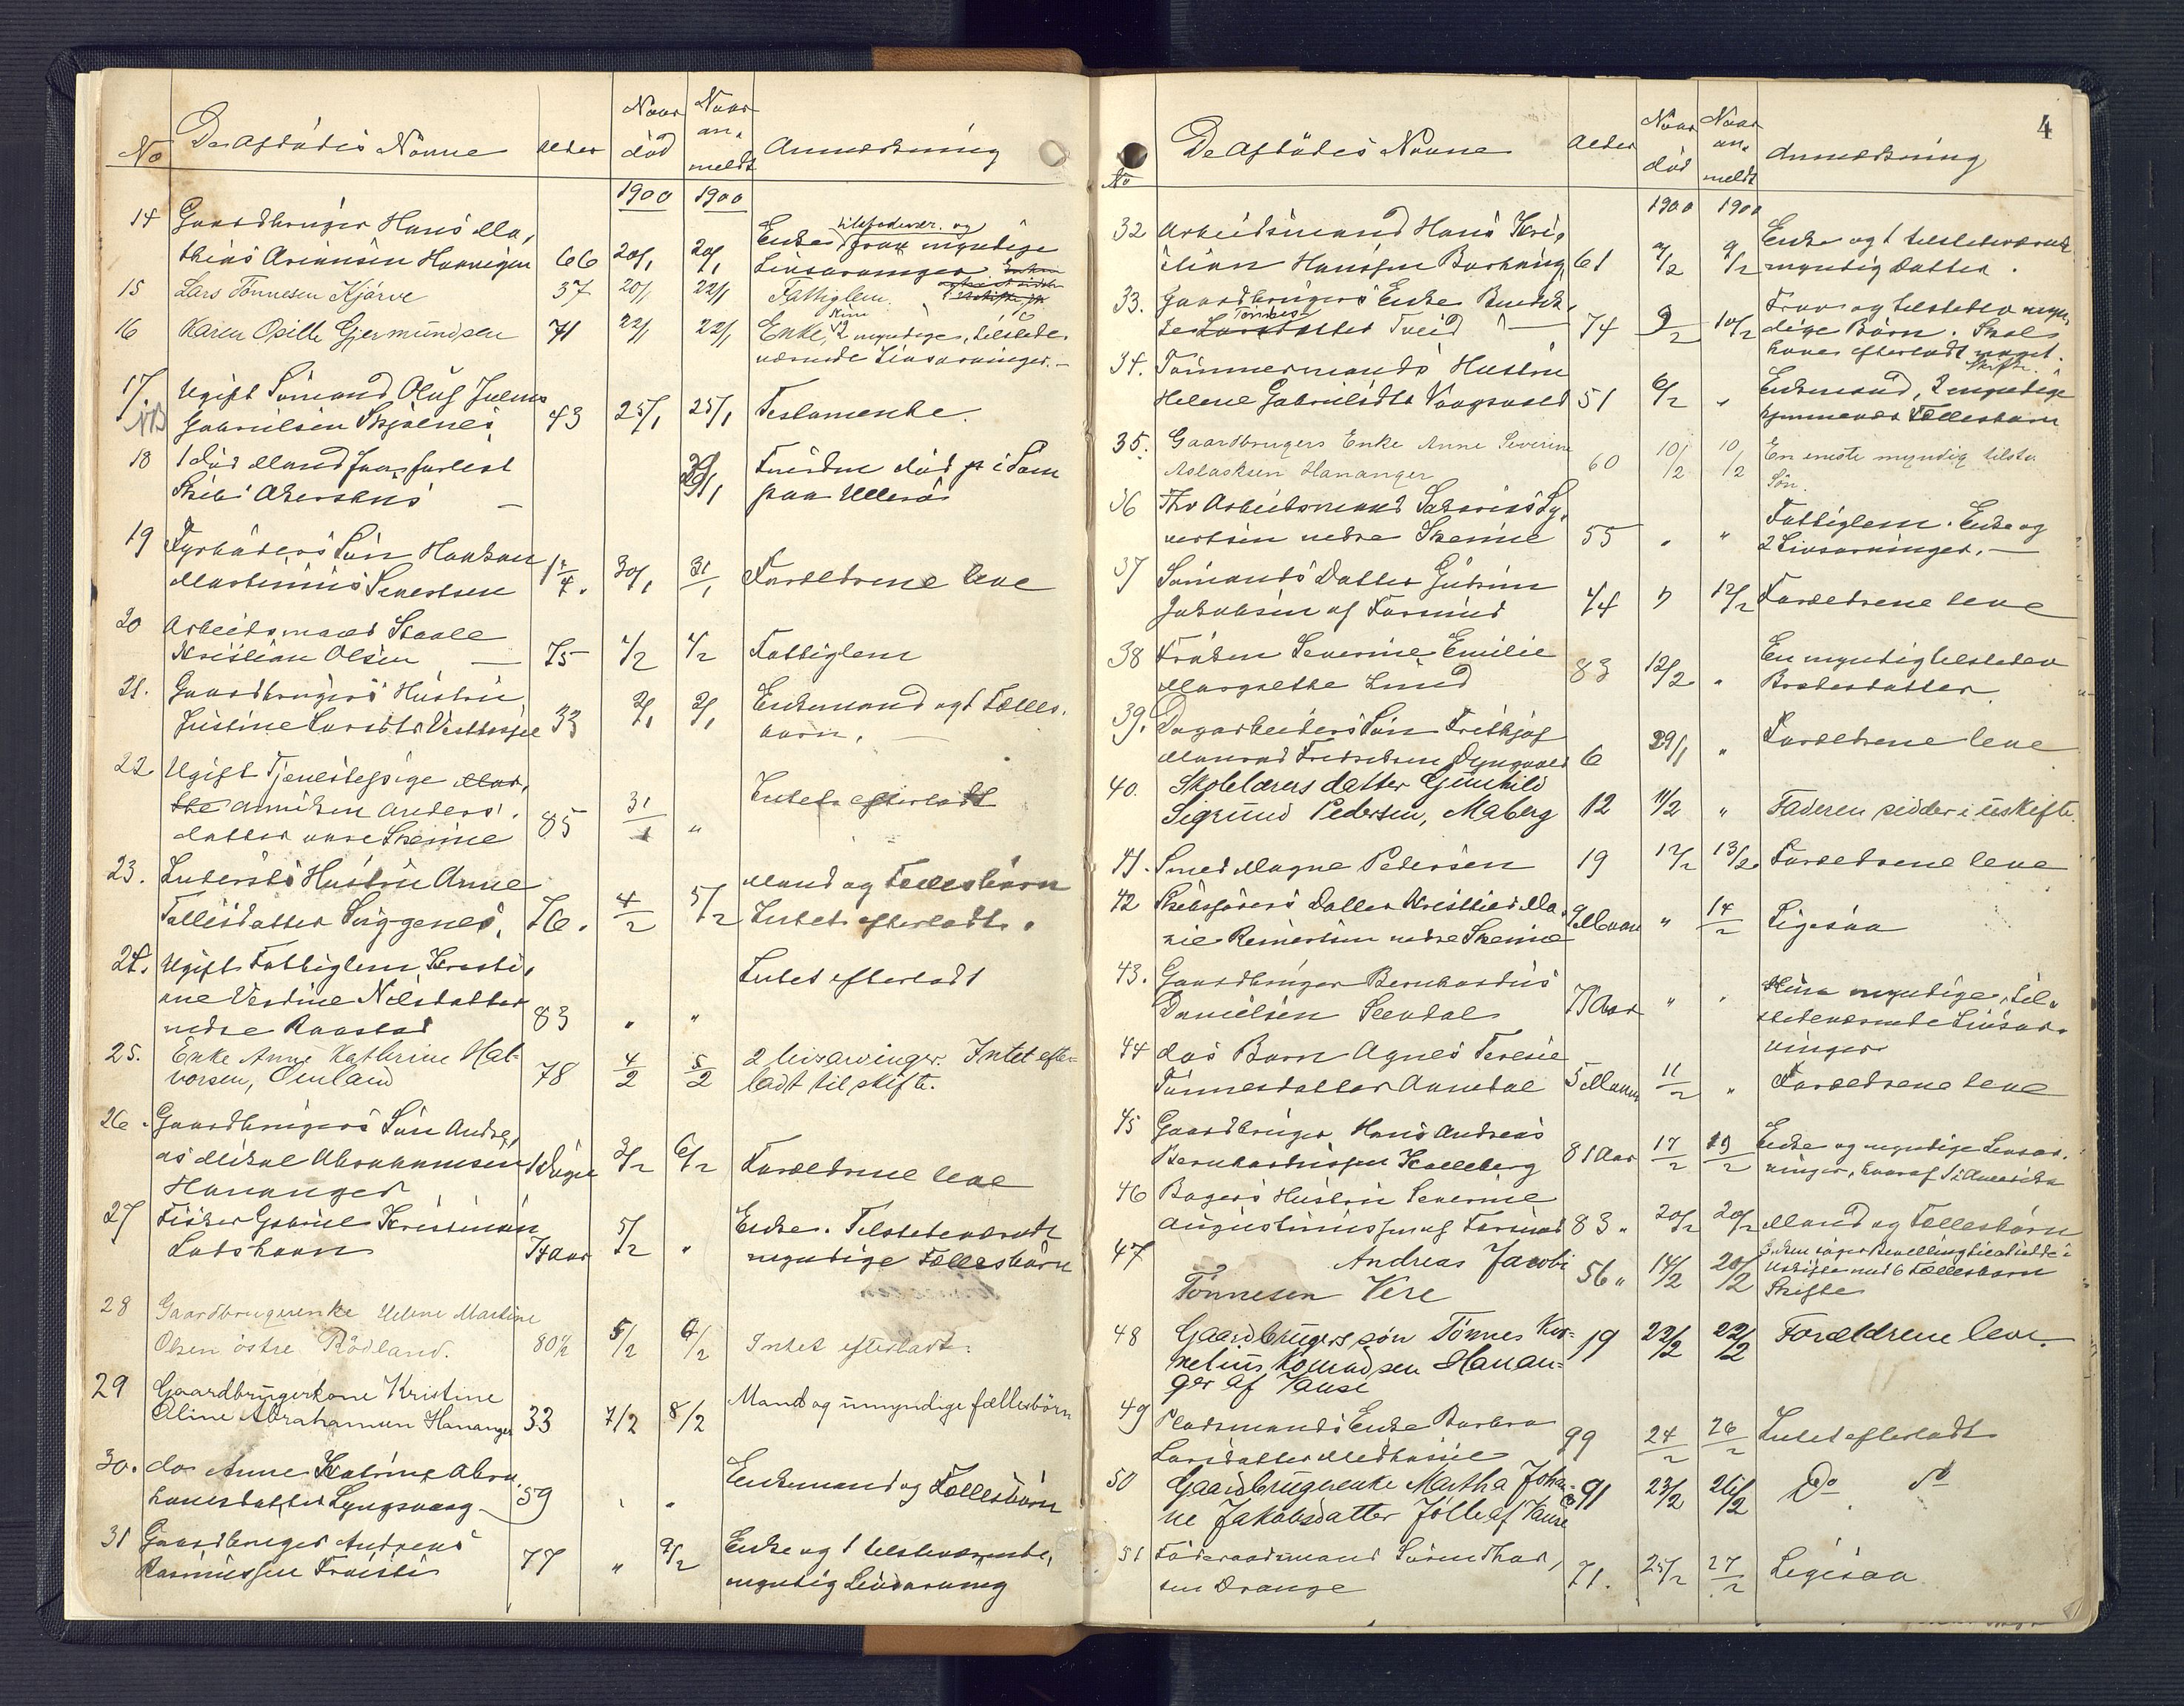 No De Afdødes Navne Alder Naar død Naar anmeldt Anmærkning
1900 1900
14 Gaardbruger Hans Ma,
thias Ariansen Hananger 66 20/1 20/1 Enke tilstedevær. og
myndige
Livsarvinger.
15 Lars Tönnesen Kjörve 37 20/1 22/1 Fattiglem.
16 Karen Osille Gjermundsen 71 22/1 22/1 Enke, 2 myndige, tilstede
værende Livsarvinger.
17. NB Ugift Sömand Oluf Julius
Gabrielsen Skjolnes 43 25/1 25/1 Testamente.
18 1 död Mand fra forlist
Skib Akershus 29/1 Funden död
paa Ullerö
19 Fyrböders Sön Haakon
Martinius Severtsen 1 1/4. 30/1 31/1 Forældrene leve
20 Arbeidsmand Staale
Kristian Olsen 75 1/2 1/2 Fattiglem
21. Gaardbrugers Hustru
Justine 33 2/1 2/1 Enkemand og 1 Fælles,
barn.
22. Ugift Tjenestepige
Anniken Anders,
datter øvre Skeime 85 31/1 " Intet efterladt
23. Inderstes Hustru Anne
Tallisdatter Siggenes, 76. 4/2 5/2 Mand og Fællesbørn
Intet efterladt.
24. Ugift Fattiglem, Kristi,
ane Verdine Nilsdatter
nedre Raastad 83 " " Intet efterladt
25. Enke Anne Kathrine Hal-
vorsen, Omland 78 4/2 5/2 2 livsarvinger. Intet efter-
ladt til skifte.
26. Gaardbrugers Sön Andre,
as Mikal Abrahamsen
Hananger 1 Dage 3/2 6/2 Forældrene leve
27 Fisker Gabriel Kristensen
Lodshavn 74 aar 5/2 " Enke. Tilstedeværende
myndige Fællesbørn
28 Gaardbrugerenke Helene Martine
Olsen östre Rödland. 80½ 5/2 6/2 Intet efterladt.
29 Gaardbrugerkone Kristine
Oline Abrahamsen Hananger 33 7/2 8/2 Mand og umyndige fællesbörn
30. do Anne Katrine Abra,
hamsdatter Lyngsvaag 59 " " Enkemand og Fællesbörn
31 Gaardbruger Andreas
Rasmussen Froiste 77 " 9/2 Enke og 1 tilstedeværende,
myndig Livsarving
4
No De Afdødes Navne Alder Naar død Naar anmeldt Anmærkning
1900 1900
32 Arbeidsmand Hans Kri,
stian Hanssen Borhaug 61 9/2 9/2 Enke og 1 tilstedeværende
myndig Datter.
33. Gaardbrugers Enke
Tönnes datter Tveid 74 9/2 10/2 tilstedev. myn,
dige Börn. Skal
have efterladt noget.
Skifte.
34. Tömmermands Hustru
Helene Gabrielsdtr Vaagsvold 51 6/2 " Enkemand, 2 myndige
Fællesbarn
35. Gaardbrugers Enke Anne Severine
Aslaksen Hananger 60 10/2 10/2 En eneste myndig tilste
Sön.
36 Fhv Arbeidsmand Sakarias Sy,
vertsen nedre Skeime 55 " " Fattiglem. Enke og
2 Livsarvinger.
37 Sömands Datter Gudrun
Jakobsen af Farsund 1/4 " 12/2 Forældrene leve
38 Fröken Severine Emilie
Margrethe Lund 83 12/2 " En myndig tilstedev
Broderdatter
39. Dagarbeiders Sön Frithjof
Manrad Fredriksen Dyngvold 6 29/1 " Forældrene leve
40. Skolelærers datter Gunhild
Sigrund Pedersen, Maberg 12 11/2 " Faderen sidder i uskifte.
41. Smed Magne Pedersen 19 12/2 13/2 Forældrene leve
42 Skibsförers Datter Kristine Ma,
rie Reinertsen nedre Skeime 9 Maan " 14/2 Ligesaa
43. Gaardbruger Bernhardus
Danielsen Stendal 71 Aar " " Kun myndige, til,
stedeværende Livsar,
vinger
44 dös Barn Agnes Teresie
Tönnesdatter Aamdal 5 Maaned 11/2 " Forældrene leve
45 Gaardbruger Hans Andreas
Bernhardussen Kalleberg 81 Aar 17/2 19/2 Enke og myndige Livsar,
vinger, hvoraf 1 i Amerika
46 Bagers Hustru Severine
Augustinussen af Farsund 83 " 20/2 20/2 Mand og Fællesbörn
47 Andreas Jacob
Tönnesen Vere 56 " 14/2 20/2 Enken søger Bevilling til at sidde i
Uskifte med 6 Fællesbarn
Skifte
48 Gaardbrugers sön Tönnes Kor-
nelius Konradsen Hanan-
ger af Vanse 19 22/2 22/2 Forældrene leve.
49 Pladsmands Enke Barbra
Larsdatter Midhassel 99 24/2 26/2 Intet efterladt
50 Gaardbrugerenke Martha Johan-
ne Jakobsdatter Jölle af Vanse 91 23/2 26/2 Do do
51 Föderaadsmand Sören Thor,
sen Drange 71. 25/2 27/2 Ligesaa